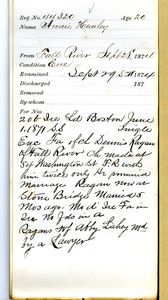 Reg. No. 14320 Age 20
Name Annie Hanley
From Fall River Sept 28 1874
Condition Enc
Examined Sept 29 1874
Discharged 187
Removed
By whom
20 b Ire Ld Boston June
1. 1871 S.S. Single
Enc Fa of cd Dennis Ragan
of Fall River She made at
St P. R with
him twice only He promised
Marriage Ragan now at
Stone Bridge Married 5
Mos ago. Mo d Ire Fa in
Ire No Jds in a
Ragans wf Abby Lahey md
by a Lawyer